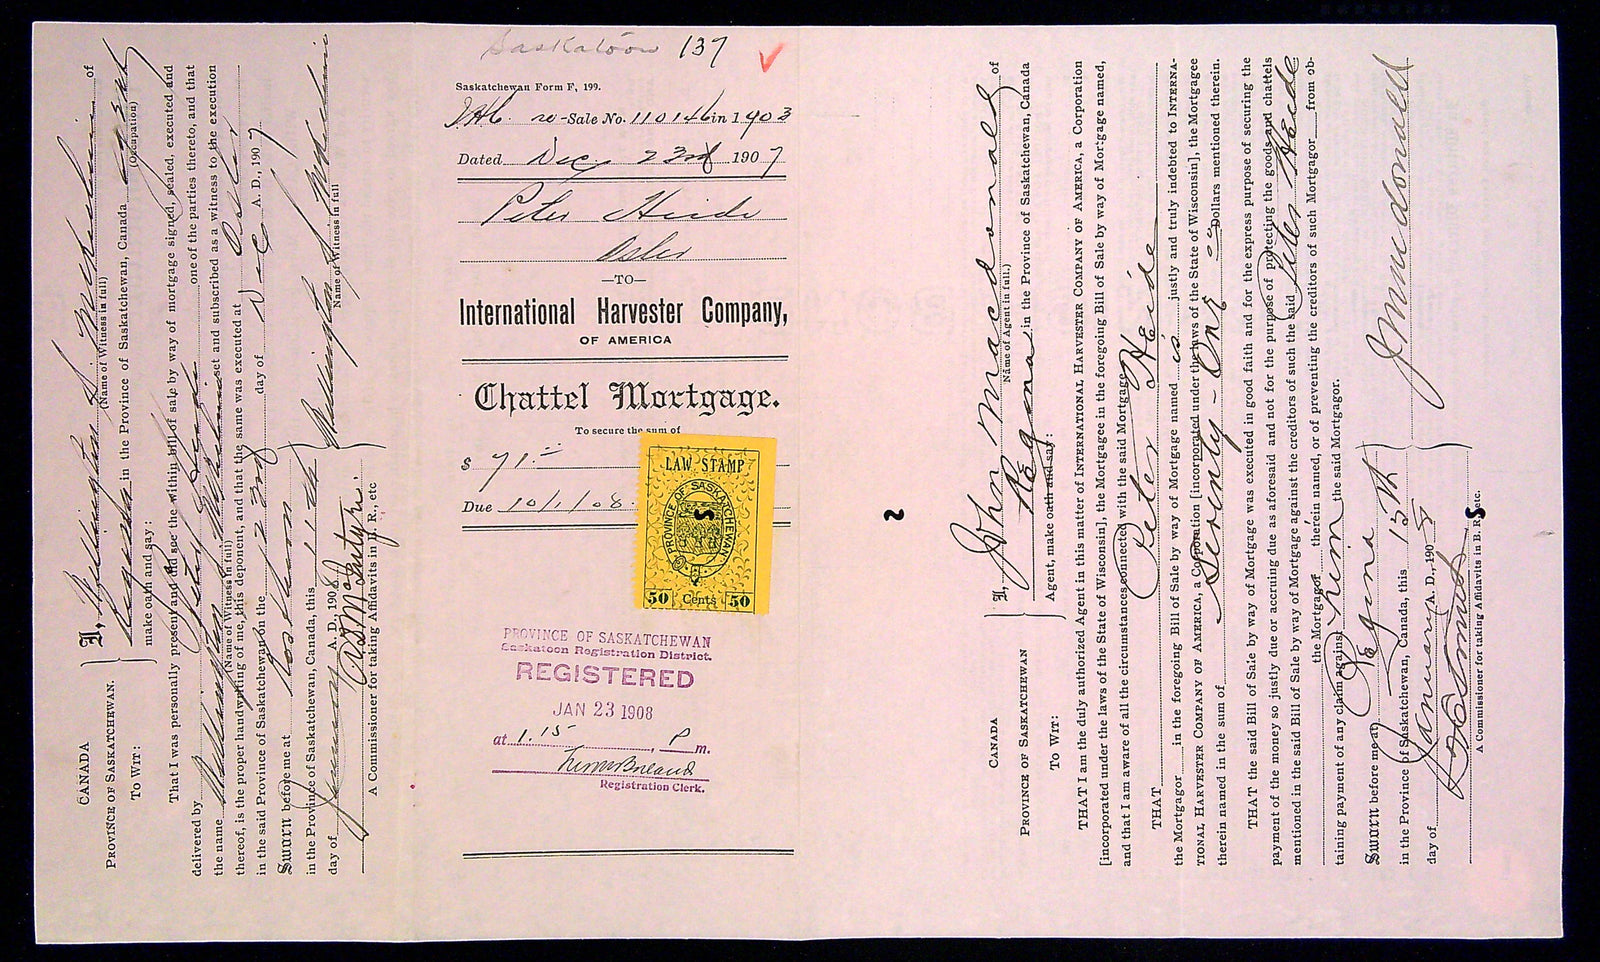 Saskatoon 137
Saskatchewan Form F, 199.
re-Sale No. 110146 in 1903
Dated Dec. 23rd 1907
Peter Heide
Osler
—TO—
International Harvester Company,
OF AMERICA
Chattel Mortgage.
To secure the sum of
$ 71.
Due 10/1/08.
LAW STAMP
PROVINCE OF SASKATCHEWAN
50 Cents 50
PROVINCE OF SASKATCHEWAN
Saskatoon Registration District.
REGISTERED
JAN 23 1908
at 1.15 , P m.
Registration Clerk.
CANADA
PROVINCE OF SASKATCHEWAN.
To Wit:
I, Wellington of
(Name of Witness in full)
in the Province of Saskatchewan, Canada agent
(Occupation)
make oath and say:
That I was personally present and did see the within bill of sale by way of mortgage signed, sealed, executed and
delivered by Peter Heide one of the parties thereto, and that
the name Wellington set and subscribed as a witness to the execution
(Name of Witness in full)
thereof, is the proper handwriting of me, this deponent, and that the same was executed at Osler
in the said Province of Saskatchewan on the 23rd day of Dec A. D., 1907
Sworn before me at Rosthern
in the Province of Saskatchewan, Canada, this 11th
day of January A. D. 1908
Wellington
Name of Witness in full
A Commissioner for taking Affidavits in B. R., etc
CANADA
PROVINCE OF SASKATCHEWAN
To Wit:
I, John Macdonald of
(Name of Agent in full.)
Regina in the Province of Saskatchewan, Canada
Agent, make oath and say:
THAT I am the duly authorized Agent in this matter of INTERNATIONAL HARVESTER COMPANY OF AMERICA, a Corporation
[incorporated under the laws of the State of Wisconsin], the Mortgagee in the foregoing Bill of Sale by way of Mortgage named,
and that I am aware of all the circumstances connected with the said Mortgage
THAT Peter Heide
the Mortgagor in the foregoing Bill of Sale by way of Mortgage named is justly and truly indebted to INTERNA-
TIONAL HARVESTER COMPANY OF AMERICA, a Corporation [incorporated under the laws of the State of Wisconsin], the Mortgagee
therein named in the sum of Seventy-One Dollars mentioned therein.
THAT the said Bill of Sale by way of Mortgage was executed in good faith and for the express purpose of securing the
payment of the money so justly due or accruing due as aforesaid and not for the purpose of protecting the goods and chattels
mentioned in the said Bill of Sale by way of Mortgage against the creditors of such the said Peter Heide
the Mortgagor therein named, or of preventing the creditors of such Mortgagor from ob-
taining payment of any claim against him the said Mortgagor.
Sworn before me at Regina
in the Province of Saskatchewan, Canada, this 15th
day of January A. D., 1908
J Macdonald
A Commissioner for taking Affidavits in B. R. etc.